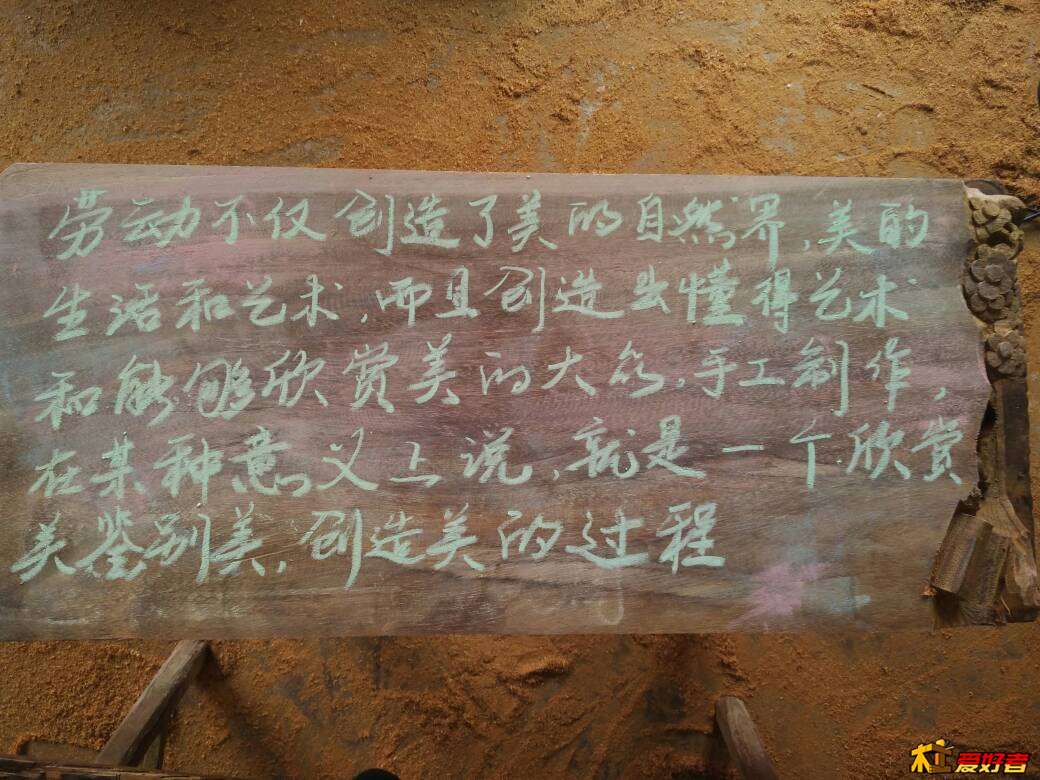 劳动不仅创造了美的自然界，美的
生活和艺术，而且创造出懂得艺术
和能够欣赏美的大众。手工制作，
在某种意义上说，就是一个欣赏
美鉴别美，创造美的过程
木工爱好者